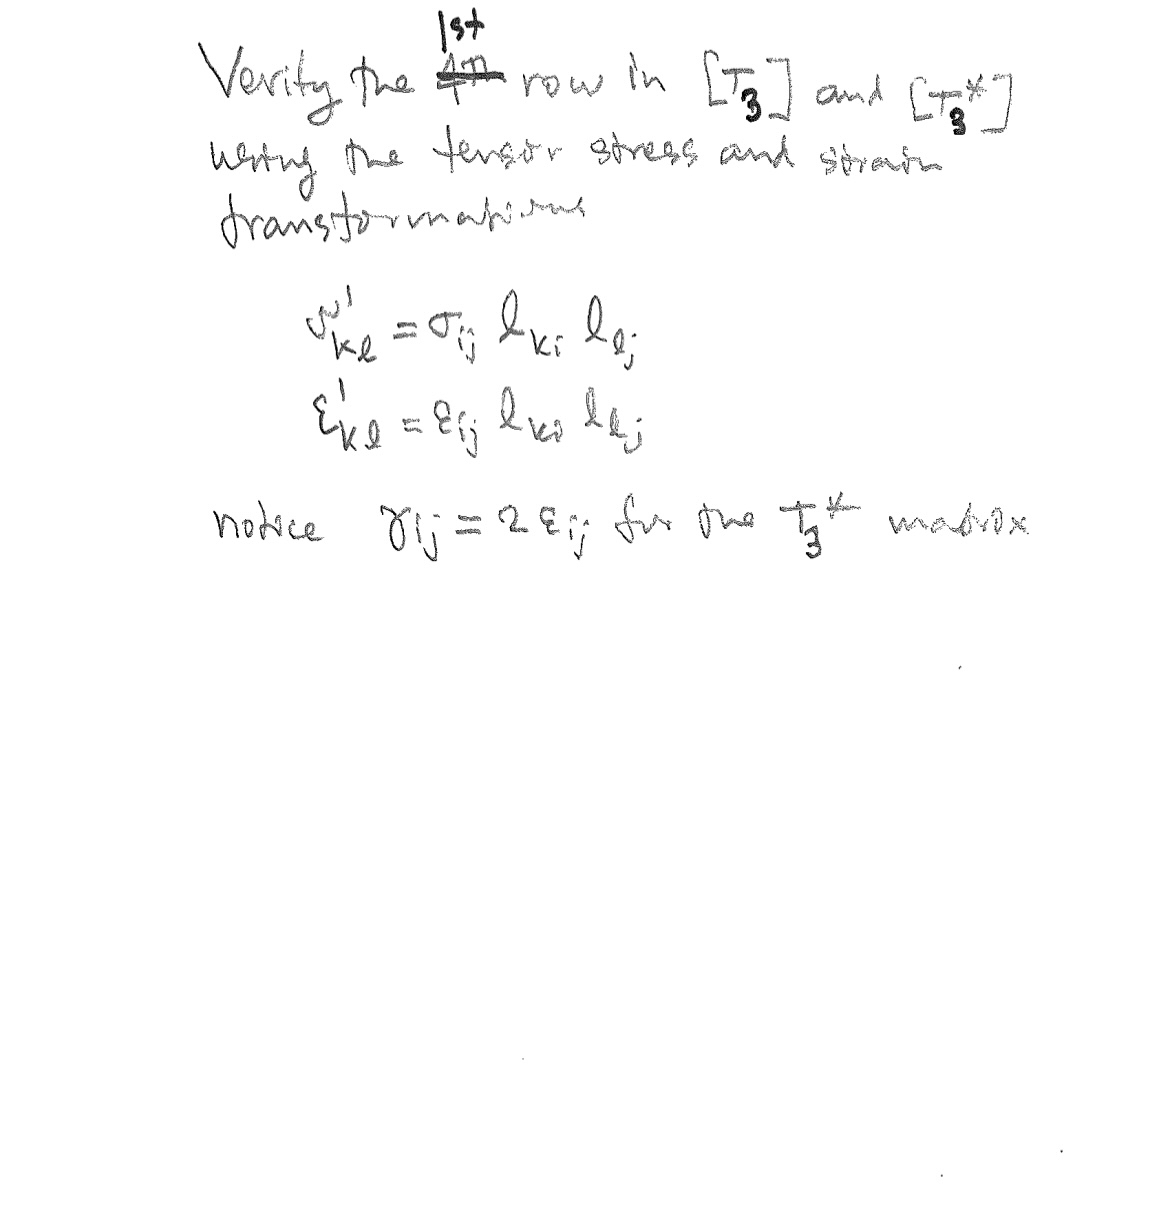 1st
Verify the 4th row in [T3] and [T3*]
using the tensor stress and strain
transformations
σ'kl = σij lki llj
ε'kl = εij lki llj
notice γij = 2 εij for the T3* matrix